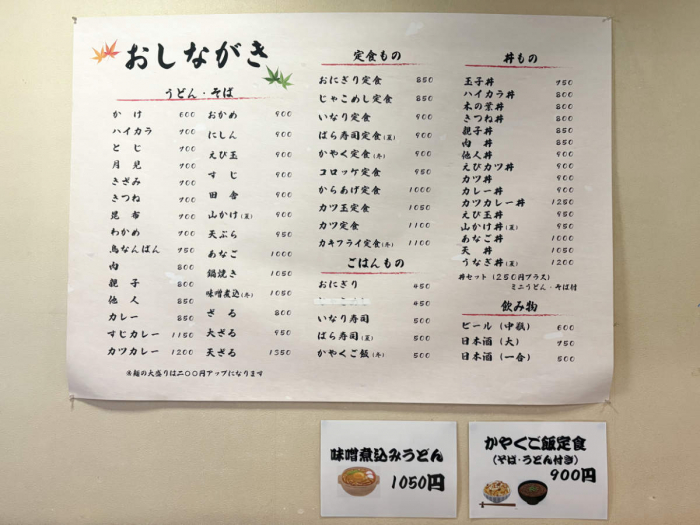 おしながき
うどん・そば
かけ 600
ハイカラ 700
とじ 700
月見 700
きざみ 700
きつね 700
昆布 700
わかめ 700
鳥なんばん 750
肉 800
親子 800
他人 850
カレー 850
すじカレー 1150
カツカレー 1200
おかめ 900
にしん 900
えび玉 900
すじ 900
田舎 900
山かけ(夏) 900
天ぷら 950
あなご 1000
鍋焼き 1050
味噌煮込(冬) 1050
ざる 800
大ざる 950
天ざる 1350
※麺の大盛りは二〇〇円アップになります
定食もの
おにぎり定食 850
じゃこめし定食 850
いなり定食 900
ばら寿司定食(夏) 900
かやく定食(冬) 900
コロッケ定食 950
からあげ定食 1000
カツ玉定食 1050
カツ定食 1100
カキフライ定食(冬) 1100
ごはんもの
おにぎり 450
450
いなり寿司 500
ばら寿司(夏) 500
かやくご飯(冬) 500
丼もの
玉子丼 750
ハイカラ丼 800
木の葉丼 800
きつね丼 850
親子丼 850
肉丼 850
他人丼 900
えびカツ丼 900
カツ丼 900
カレー丼 900
カツカレー丼 1250
えび玉丼 950
山かけ丼(夏) 950
あなご丼 1000
天丼 1050
うなぎ丼(夏) 1200
丼セット(250円プラス)
ミニうどん・そば付
飲み物
ビール(中瓶) 600
日本酒(大) 750
日本酒(一合) 500
味噌煮込みうどん
1050円
かやくご飯定食
(そば・うどん付き)
900円